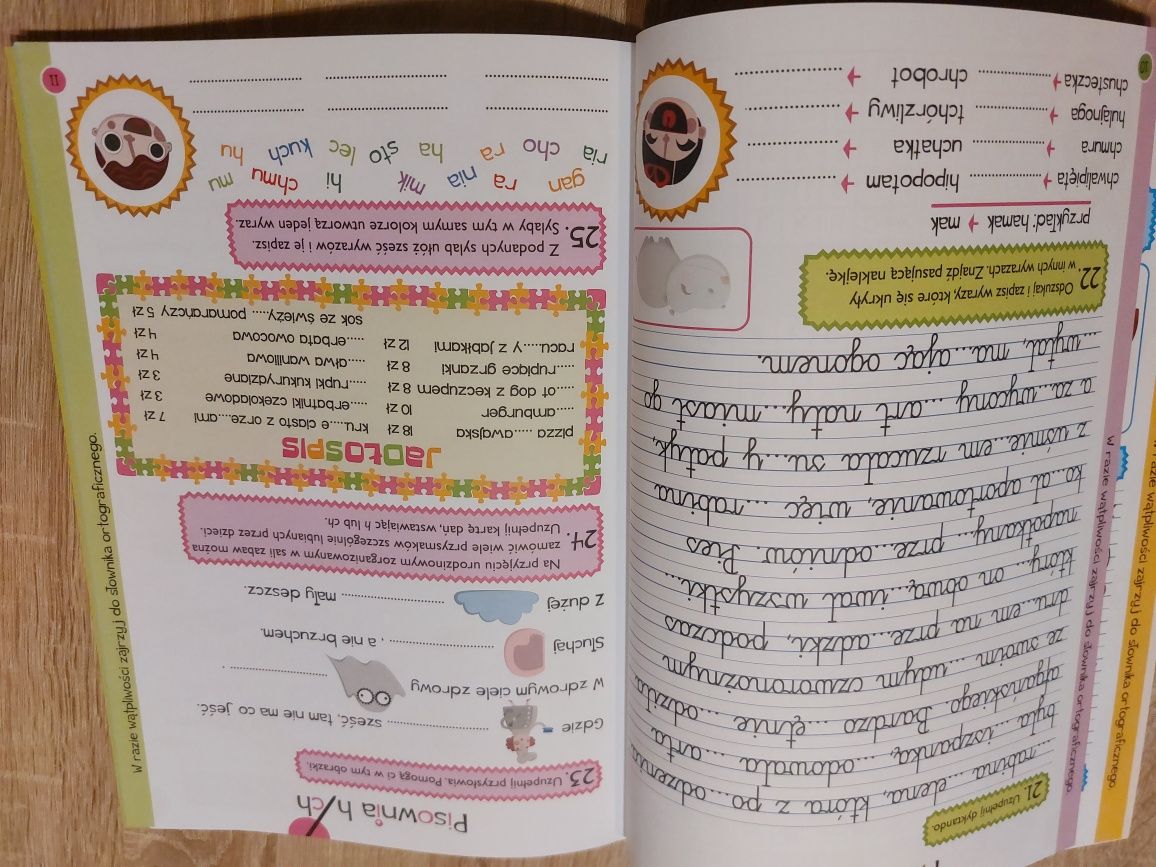 21. Uzupełnij dyktando.
...rabina ...elena, która z po...odzenia
była ...iszpanką, ...odowała ...arta
afgańskiego. Bardzo ...ętnie ...odziła
ze swoim ...udym czworonożnym
dru...em na prze...adzki, podczas
który... on obwą...iwał wszystki...
napotkany... prze...odniów. Pies
ko...ał aportowanie, więc ...rabina
z uśmie...em rzucała su...y patyk,
a za...wycony ...art naty...miast go
...wytał, ma...ając ogonem.
22. Odszukaj i zapisz wyrazy, które się ukryły
w innych wyrazach. Znajdź pasującą naklejkę.
przykład: hamak → mak
chwalipięta → .................. hipopotam → ..................
chmura → .................. uchatka → ..................
hulajnoga → .................. tchórzliwy → ..................
chusteczka → .................. chrobot → ..................
10
W razie wątpliwości zajrzyj do słownika ortograficznego.
W razie wątpliwości zajrzyj do słownika ortograficznego.
Pisownia h/ch
23. Uzupełnij przysłowia. Pomogą ci w tym obrazki.
Gdzie .................. sześć, tam nie ma co jeść.
W zdrowym ciele zdrowy .................. .
Słuchaj .................. , a nie brzuchem.
Z dużej .................. mały deszcz.
24. Na przyjęciu urodzinowym zorganizowanym w sali zabaw można
zamówić wiele przysmaków szczególnie lubianych przez dzieci.
Uzupełnij kartę dań, wstawiając h lub ch.
JADŁOSPIS
pizza .....awajska 18 zł
.....amburger 10 zł
.....ot dog z keczupem 8 zł
.....rupiące grzanki 8 zł
racu.....y z jabłkami 12 zł
kru.....e ciasto z orze.....ami 7 zł
.....erbatniki czekoladowe 3 zł
.....rupki kukurydziane 3 zł
.....ałwa waniliowa 4 zł
.....erbata owocowa 4 zł
sok ze świeży..... pomarańczy 5 zł
25. Z podanych sylab ułóż sześć wyrazów i je zapisz.
Sylaby w tym samym kolorze utworzą jeden wyraz.
gan ra nia mik hi chmu mu
ria cho ra ha sto lec kuch hu
11
W razie wątpliwości zajrzyj do słownika ortograficznego.